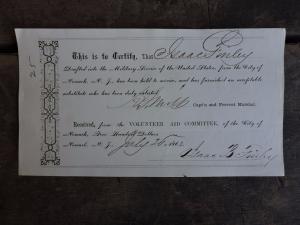 25
This is to Certify, That Isaac Finley
Drafted into the Military Service of the United States, from the City of
Newark, N. J., has been held to service, and has furnished an acceptable
substitute who has been duly enlisted.
Capt'n and Provost Marshal.
Received, from the VOLUNTEER AID COMMITTEE, of the City of
Newark, Three Hundred Dollars
Newark N. J. July 25
Isaac B. Finley